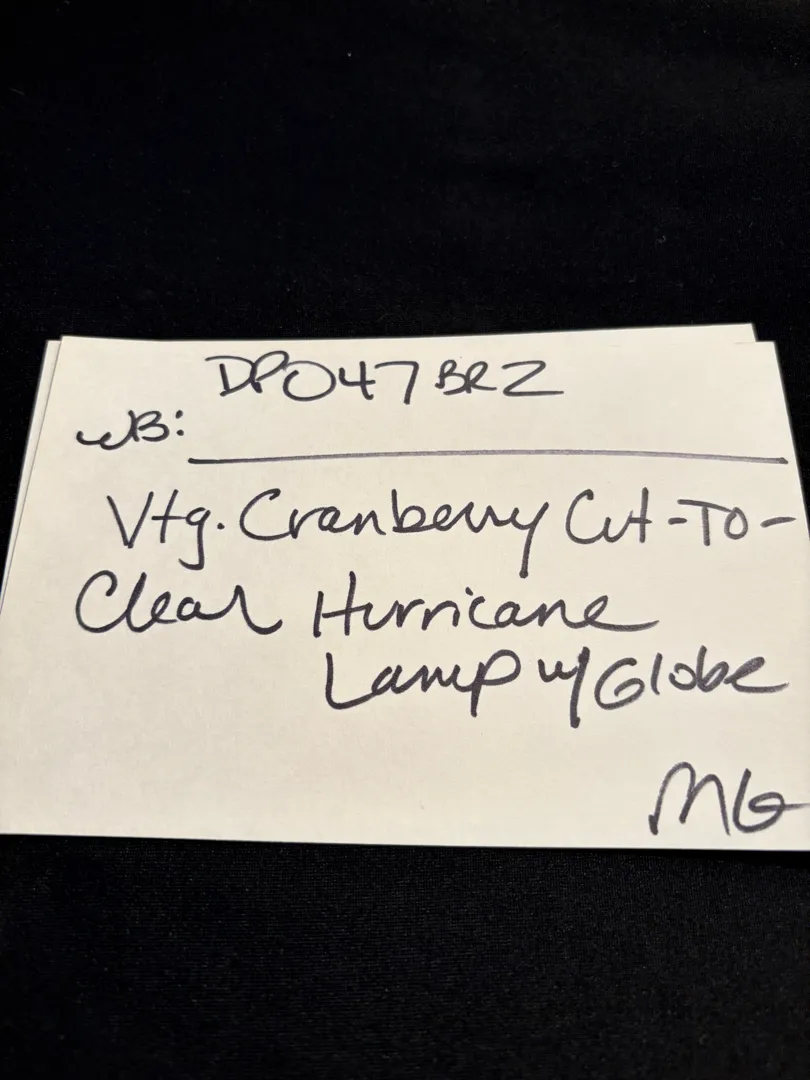 DPO47BRZ
WB:
Vtg. Cranberry Cut-To-
Clear Hurricane
Lamp w/ Globe
MG